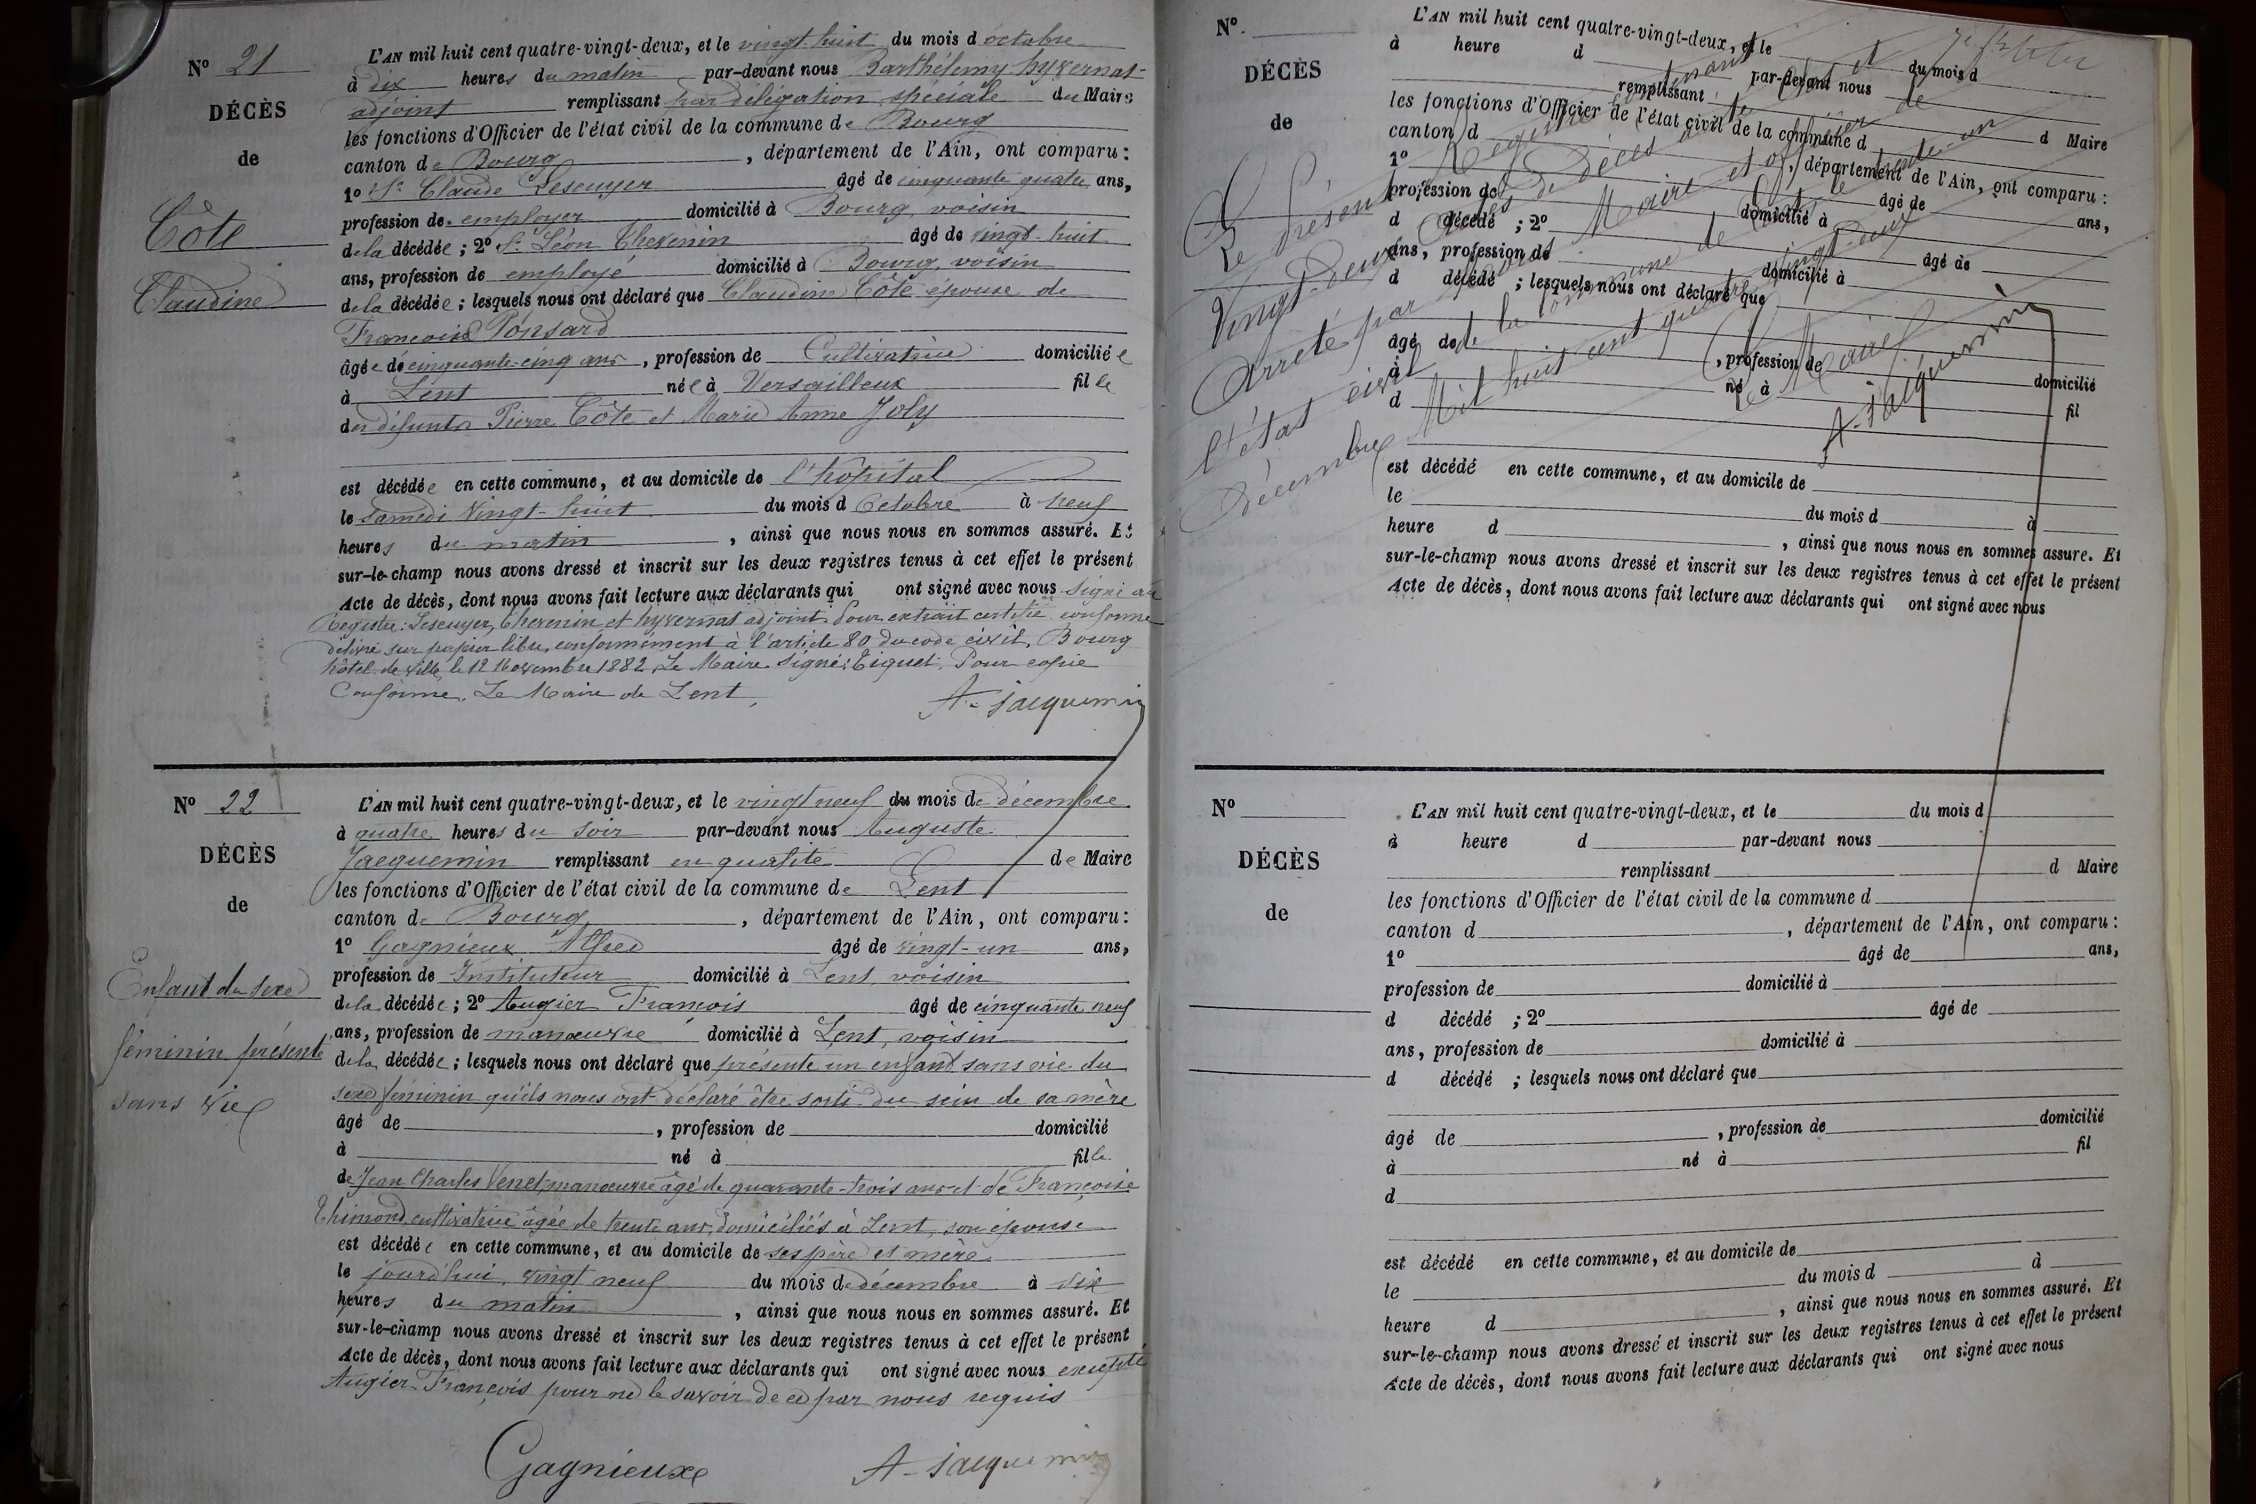 N° 21
DÉCÈS
de
Côte
Claudine
L'AN mil huit cent quatre-vingt-deux, et le vingt-huit du mois d'octobre
à dix heures du matin par-devant nous Barthélemy hyvernat
adjoint remplissant par délégation spéciale du Maire
les fonctions d'Officier de l'état civil de la commune de Bourg
canton de Bourg, département de l'Ain, ont comparu :
1° Sr Claude Lescuyer âgé de cinquante quatre ans,
profession de employer domicilié à Bourg, voisin
de la décédée ; 2° Sr Léon Thevenin âgé de vingt-huit
ans, profession de employé domicilié à Bourg, voisin
de la décédée ; lesquels nous ont déclaré que Claudine Côte épouse de
François Ponsard
âgée de cinquante-cinq ans, profession de Cultivatrice domiciliée
à Lent née à Versailleux fille
des défunts Pierre Côte et Marie Anne Joly
est décédée en cette commune, et au domicile de l'hôpital
le samedi vingt-huit du mois d'Octobre à neuf
heures du matin, ainsi que nous nous en sommes assuré. Et
sur-le-champ nous avons dressé et inscrit sur les deux registres tenus à cet effet le présent
Acte de décès, dont nous avons fait lecture aux déclarants qui ont signé avec nous signé au
Registre : Lescuyer, Thevenin et hyvernat adjoint. Pour extrait certifié conforme
délivré sur papier libre, conformément à l'article 80 du code civil, Bourg
hôtel de ville, le 12 Novembre 1882 Le Maire signé : Tiquet. Pour copie
Conforme, Le Maire de Lent,
A. Jacquemin
N° 22
DÉCÈS
de
Enfant du sexe
féminin présenté
sans vie
L'AN mil huit cent quatre-vingt-deux, et le vingt neuf du mois de décembre
à quatre heures du soir par-devant nous Auguste
Jacquemin remplissant en qualité de Maire
les fonctions d'Officier de l'état civil de la commune de Lent
canton de Bourg, département de l'Ain, ont comparu :
1° Gagnieux Alfred âgé de vingt-un ans,
profession de Instituteur domicilié à Lent, voisin
de la décédée ; 2° Augier François âgé de cinquante neuf
ans, profession de manœuvre domicilié à Lent, voisin
de la décédée ; lesquels nous ont déclaré que présente un enfant sans vie du
sexe féminin qu'ils nous ont déclaré être sorti du sein de sa mère
âgé de , profession de domicilié
à né à fille
de Jean Charles Venet, manœuvre âgé de quarante-trois ans et de Françoise
Thimond cultivatrice âgée de trente ans, domiciliés à Lent, son épouse
est décédée en cette commune, et au domicile de ses père et mère
le jourd'hui, vingt neuf du mois de décembre à six
heures du matin, ainsi que nous nous en sommes assuré. Et
sur-le-champ nous avons dressé et inscrit sur les deux registres tenus à cet effet le présent
Acte de décès, dont nous avons fait lecture aux déclarants qui ont signé avec nous excepté
Augier François pour ne le savoir de ce par nous requis
Gagnieux A. Jacquemin
N°
DÉCÈS
de
L'AN mil huit cent quatre-vingt-deux, et le du mois d
à heure d par-devant nous
remplissant d Maire
les fonctions d'Officier de l'état civil de la commune d
canton d , département de l'Ain, ont comparu :
1° âgé de ans,
profession de domicilié à
d décédé ; 2° âgé de
ans, profession de domicilié à
d décédé ; lesquels nous ont déclaré que
âgé de , profession de domicilié
à né à fil
d
est décédé en cette commune, et au domicile de
le du mois d à
heure d , ainsi que nous nous en sommes assuré. Et
sur-le-champ nous avons dressé et inscrit sur les deux registres tenus à cet effet le présent
Acte de décès, dont nous avons fait lecture aux déclarants qui ont signé avec nous
Le présent Registre contenant
Vingt-deux actes de décès a été
arrêté par nous Maire et officier de
l'état civil de la Commune de Lent le trente-un
Décembre Mil huit cent quatre-vingt-deux
Le Maire
A. Jacquemin
N°
DÉCÈS
de
L'AN mil huit cent quatre-vingt-deux, et le du mois d
à heure d par-devant nous
remplissant d Maire
les fonctions d'Officier de l'état civil de la commune d
canton d , département de l'Ain, ont comparu :
1° âgé de ans,
profession de domicilié à
d décédé ; 2° âgé de
ans, profession de domicilié à
d décédé ; lesquels nous ont déclaré que
âgé de , profession de domicilié
à né à fil
d
est décédé en cette commune, et au domicile de
le du mois d à
heure d , ainsi que nous nous en sommes assuré. Et
sur-le-champ nous avons dressé et inscrit sur les deux registres tenus à cet effet le présent
Acte de décès, dont nous avons fait lecture aux déclarants qui ont signé avec nous